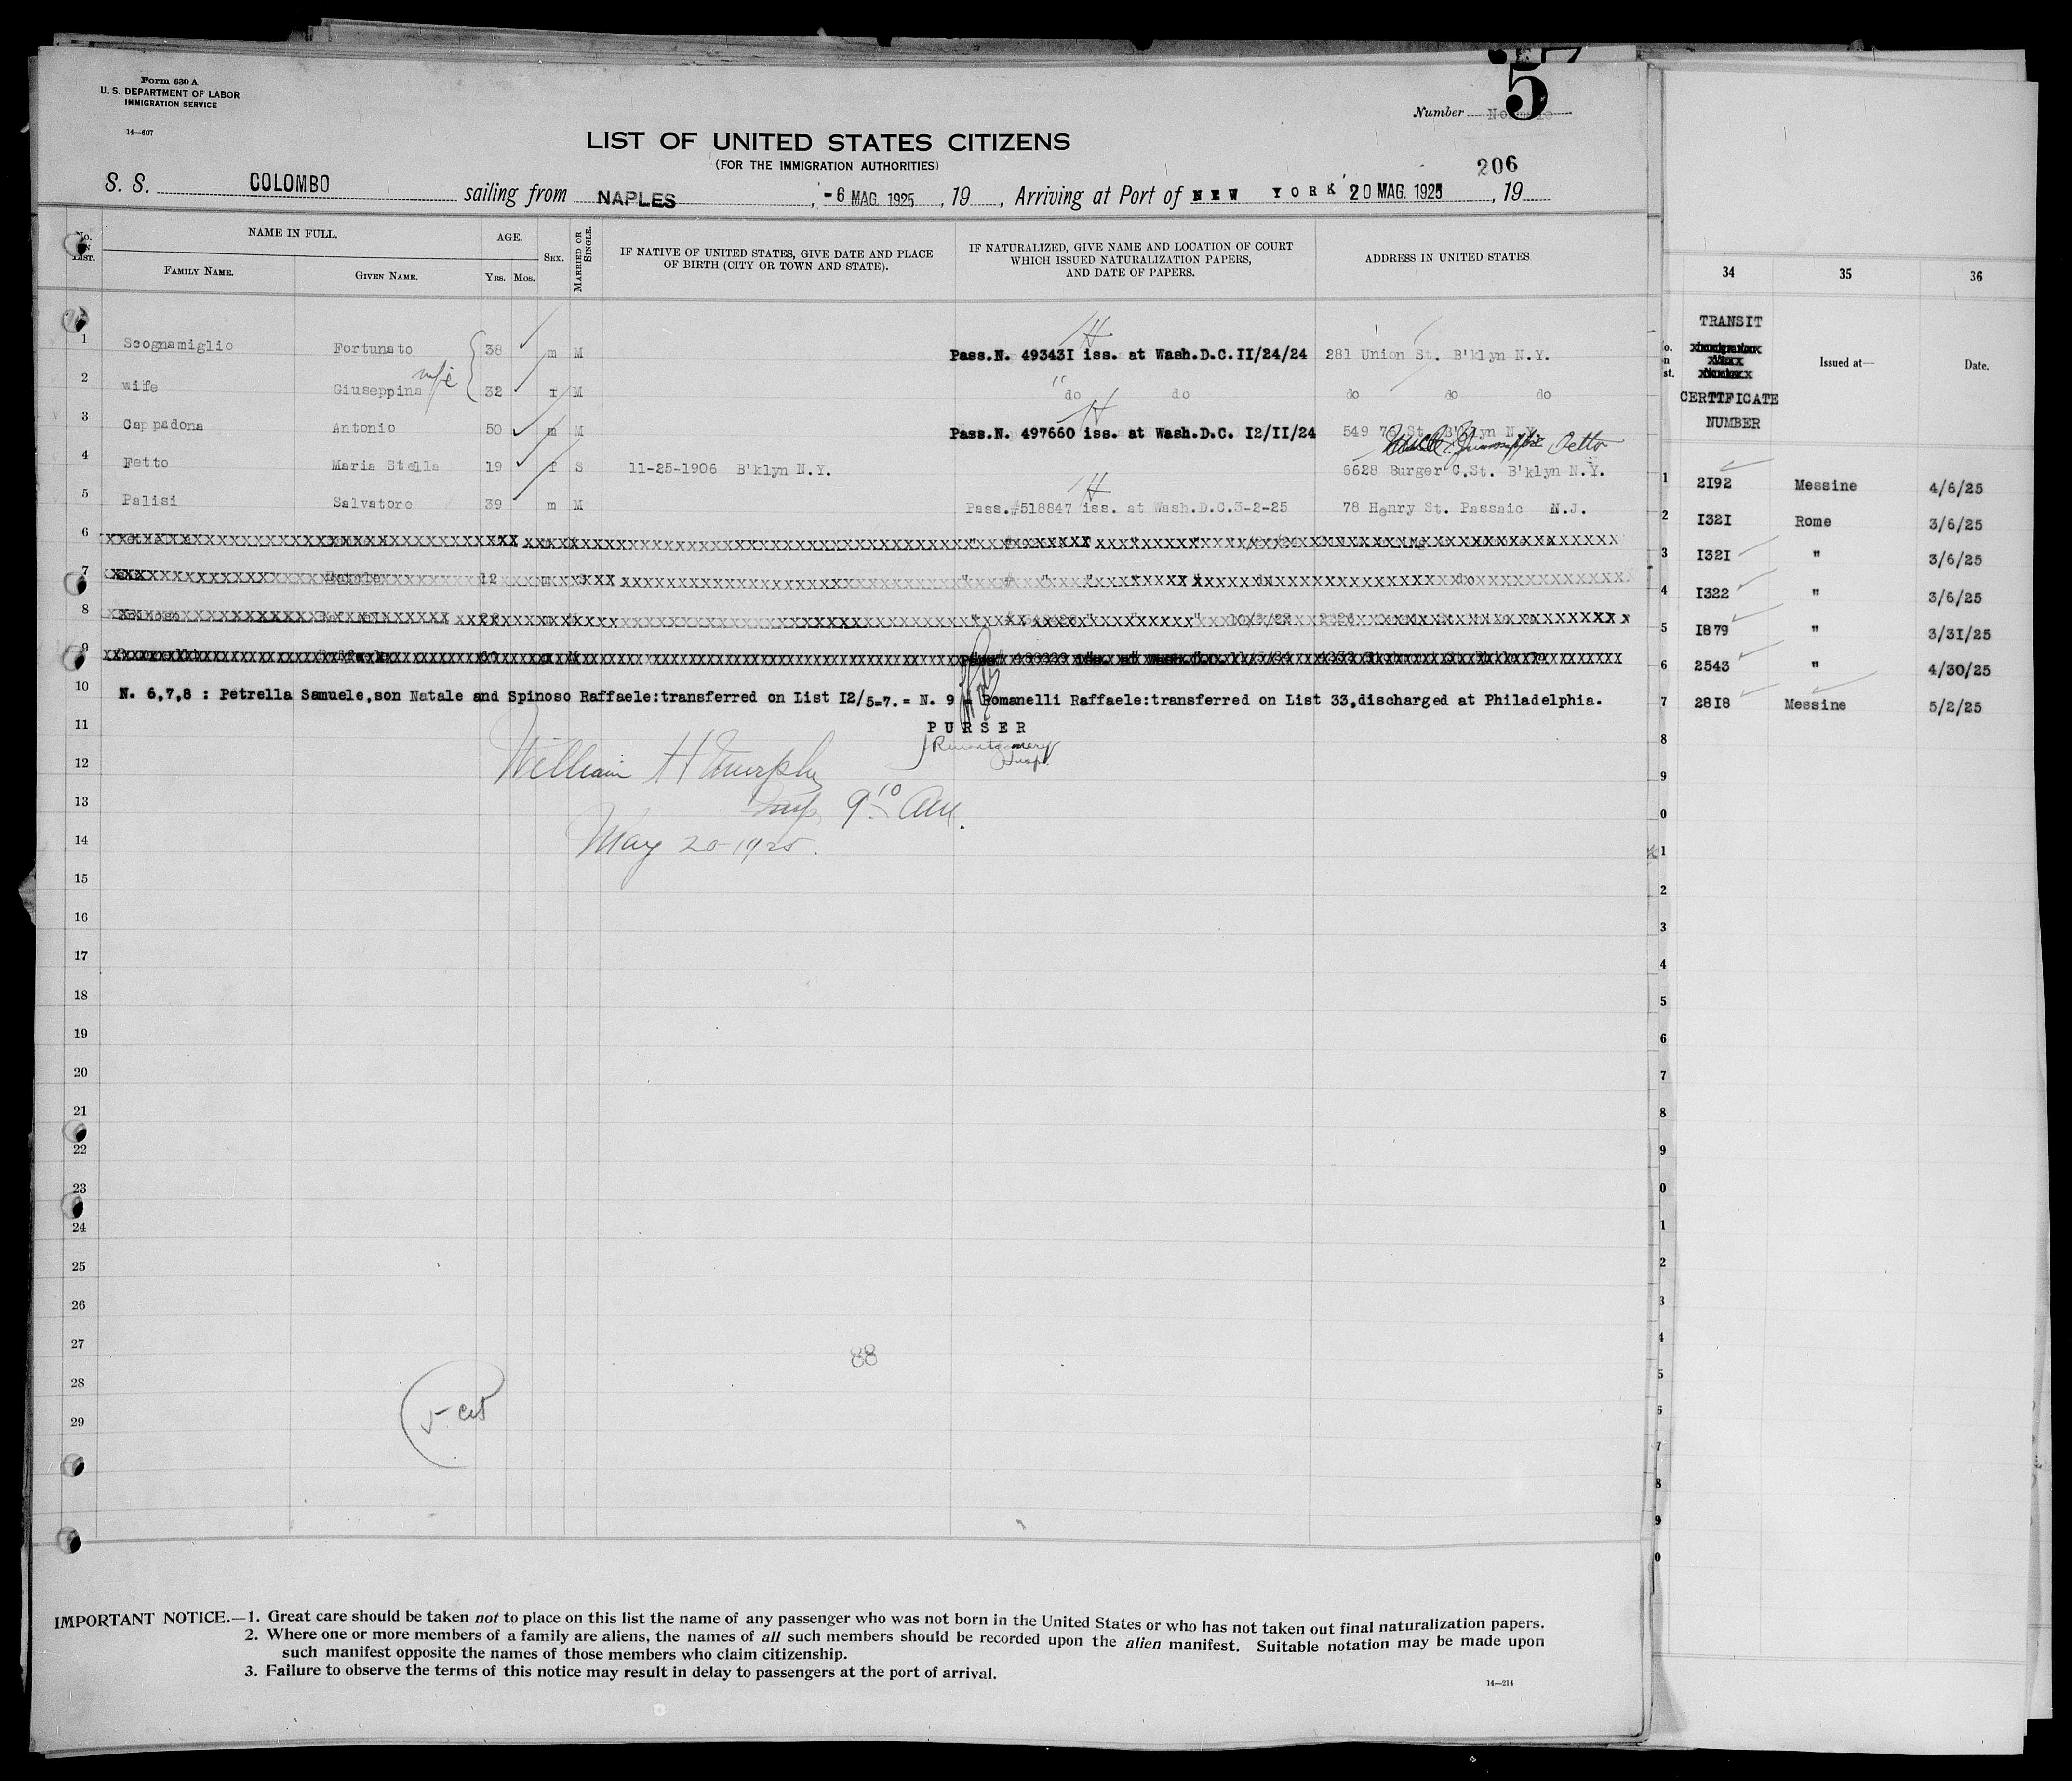 Form 630 A
U. S. DEPARTMENT OF LABOR
IMMIGRATION SERVICE
14—607
Number 5
LIST OF UNITED STATES CITIZENS
(FOR THE IMMIGRATION AUTHORITIES)
206
S. S. COLOMBO sailing from NAPLES, -6 MAG. 1925, 19, Arriving at Port of NEW YORK 20 MAG. 1925, 19
No. IN LIST. NAME IN FULL. AGE. SEX. MARRIED OR SINGLE. IF NATIVE OF UNITED STATES, GIVE DATE AND PLACE OF BIRTH (CITY OR TOWN AND STATE). IF NATURALIZED, GIVE NAME AND LOCATION OF COURT WHICH ISSUED NATURALIZATION PAPERS, AND DATE OF PAPERS. ADDRESS IN UNITED STATES
FAMILY NAME. GIVEN NAME. YRS. MOS.
1 Scognamiglio Fortunato 38 m M Pass.N. 49343I iss. at Wash.D.C.II/24/24 281 Union St. B'klyn N.Y.
2 wife Giuseppina wife 32 f M " do do do do do
3 Cappadona Antonio 50 m M Pass.N. 497660 iss. at Wash.D.C. I2/II/24 549 76 St. B'klyn N.Y.
4 Fetto Maria Stella 19 f S 11-25-1906 B'klyn N.Y. 6628 Burger C.St. B'klyn N.Y.
5 Palisi Salvatore 39 m M Pass.#518847 iss. at Wash.D.C.3-2-25 78 Henry St. Passaic N.J.
6
7
8
9
10 N. 6,7,8 : Petrella Samuele,son Natale and Spinoso Raffaele:transferred on List I2/5=7.= N. 9 = Romanelli Raffaele:transferred on List 33,discharged at Philadelphia.
11 PURSER
12 William H Murphy
13 Insp. 9 10 AM.
14 May 20-1925.
15
16
17
18
19
20
21
22
23
24
25
26
27 88
28
29
5 cit
IMPORTANT NOTICE.—1. Great care should be taken not to place on this list the name of any passenger who was not born in the United States or who has not taken out final naturalization papers.
2. Where one or more members of a family are aliens, the names of all such members should be recorded upon the alien manifest. Suitable notation may be made upon
such manifest opposite the names of those members who claim citizenship.
3. Failure to observe the terms of this notice may result in delay to passengers at the port of arrival.
14—214
34 35 36
TRANSIT
Issued at— Date.
CERTTFICATE
NUMBER
1 2I92 Messine 4/6/25
2 I32I Rome 3/6/25
3 I32I " 3/6/25
4 I322 " 3/6/25
5 I879 " 3/3I/25
6 2543 " 4/30/25
7 28I8 Messine 5/2/25
8
9
0
1
2
3
4
5
6
7
8
9
0
1
2
3
4
5
6
7
8
9
0